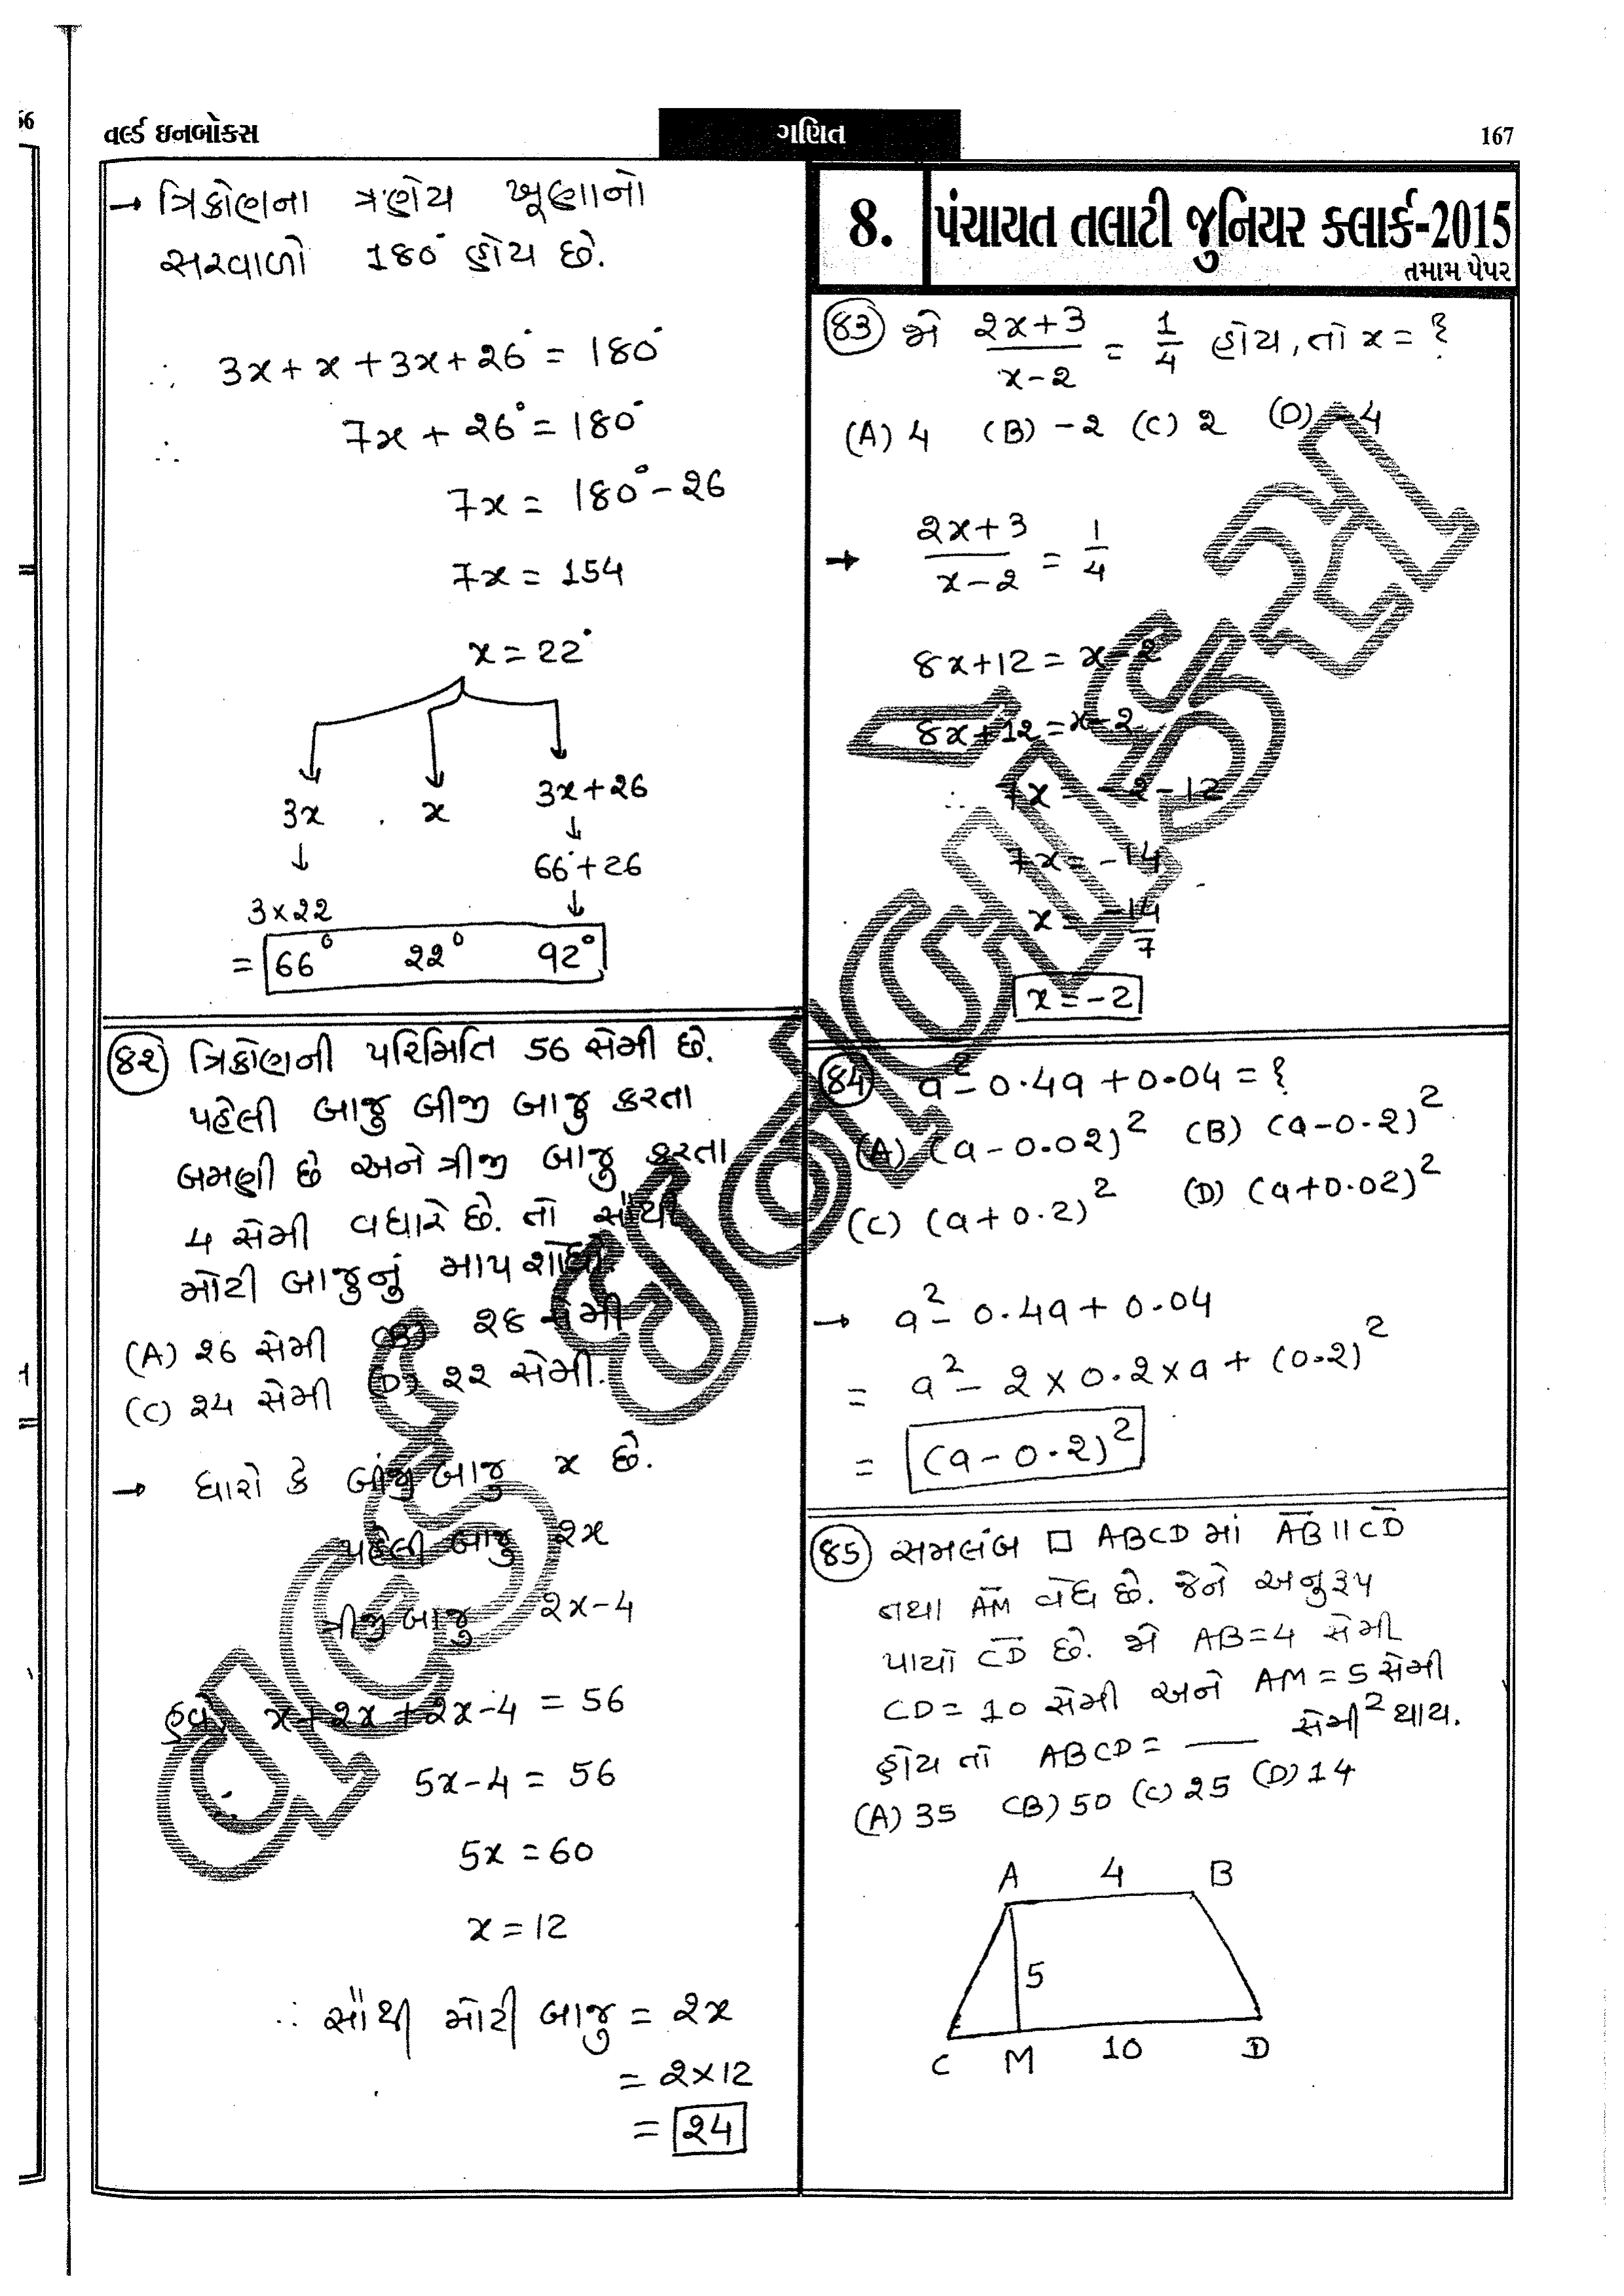 56
વર્લ્ડ ઇનબોક્સ
ગણિત
167
→ ત્રિકોણના ત્રણેય ખૂણાનો
સરવાળો 180° હોય છે.
∴ 3x + x + 3x + 26° = 180°
∴ 7x + 26° = 180°
7x = 180° - 26
7x = 154
x = 22°
3x x 3x + 26
↓ ↓
66° + 26
3 × 22 ↓
= 66° 22° 92°
82 ત્રિકોણની પરિમિતિ 56 સેમી છે.
પહેલી બાજુ બીજી બાજુ કરતા
બમણી છે અને ત્રીજી બાજુ કરતા
4 સેમી વધારે છે. તો સૌથી
મોટી બાજુનું માપ શોધો.
(A) 26 સેમી (B) 28 સેમી
(C) 24 સેમી (D) 22 સેમી.
→ ધારો કે બીજી બાજુ x છે.
પહેલી બાજુ 2x
ત્રીજી બાજુ 2x-4
હવે, x + 2x + 2x - 4 = 56
5x - 4 = 56
5x = 60
x = 12
∴ સૌથી મોટી બાજુ = 2x
= 2×12
= 24
8. પંચાયત તલાટી જુનિયર ક્લાર્ક-2015
તમામ પેપર
83 જો 2x+3/x-2 = 1/4 હોય, તો x = ?
(A) 4 (B) -2 (C) 2 (D) -4
→ 2x+3/x-2 = 1/4
8x+12 = x-2
8x+12 = x-2
∴ 7x = -2-12
7x = -14
x = -14/7
x = -2
84 a² - 0.4a + 0.04 = ?
(A) (a - 0.02)² (B) (a - 0.2)²
(C) (a + 0.2)² (D) (a + 0.02)²
→ a² - 0.4a + 0.04
= a² - 2 × 0.2 × a + (0.2)²
= (a - 0.2)²
85 સમલંબ □ ABCD માં AB || CD
તથા AM વેધ છે. જેને અનુરૂપ
પાયો CD છે. જો AB = 4 સેમી
CD = 10 સેમી અને AM = 5 સેમી
હોય તો ABCD = ___ સેમી² થાય.
(A) 35 (B) 50 (C) 25 (D) 14
A 4 B
5
C M 10 D